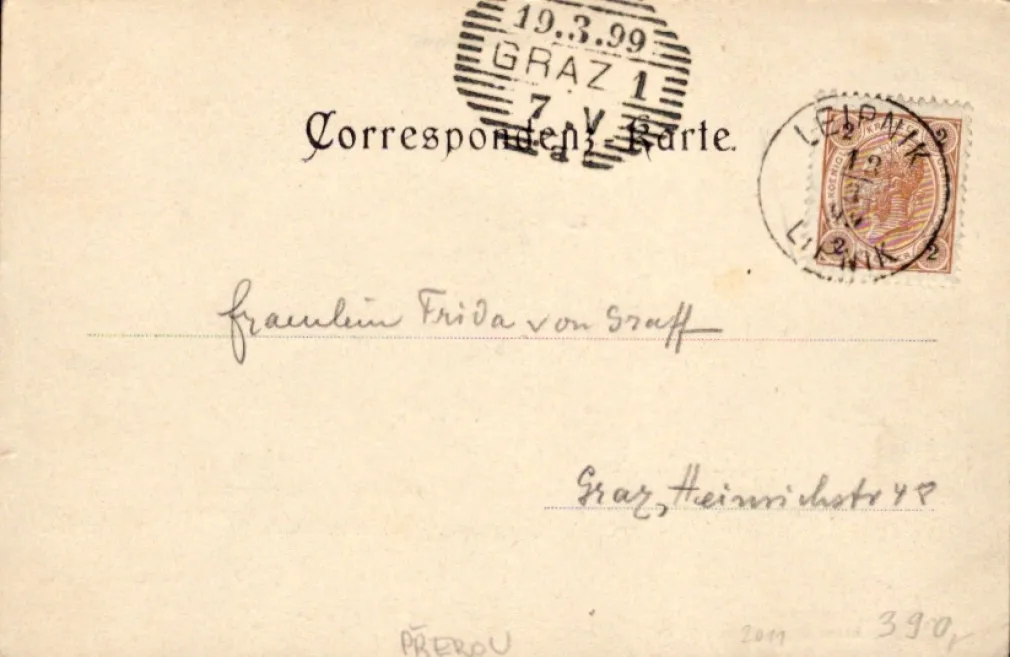 19.3.99
GRAZ 1
7 V
Correspondenz-Karte.
LEIPNIK
LIPNIK
2 2
2 2
fraeulein Frida von Graff
Graz, Heinrichstr 48
PŘEROV
2011 390,